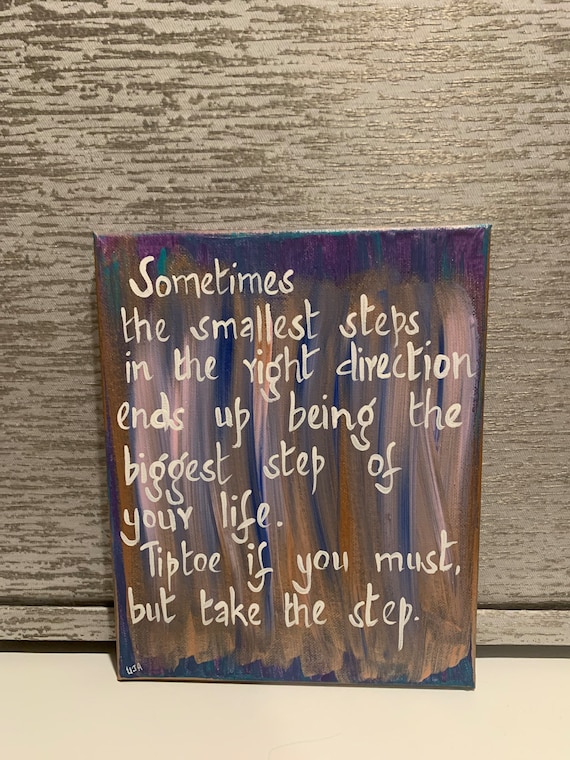 Sometimes
the smallest steps
in the right direction
ends up being the
biggest step of
your life.
Tiptoe if you must,
but take the step.